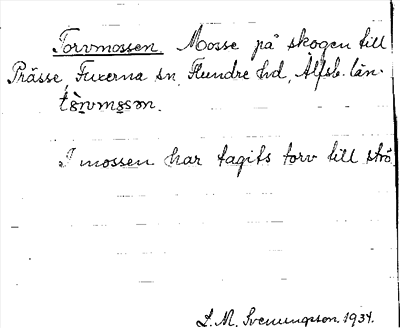 Torvmossen Mosse på skogen till
Prässe, Fuxerna sn, Flundre hd, Älfsb. län.
I mossen har tagits torv till strö.
L. M. Svenungsson. 1934.